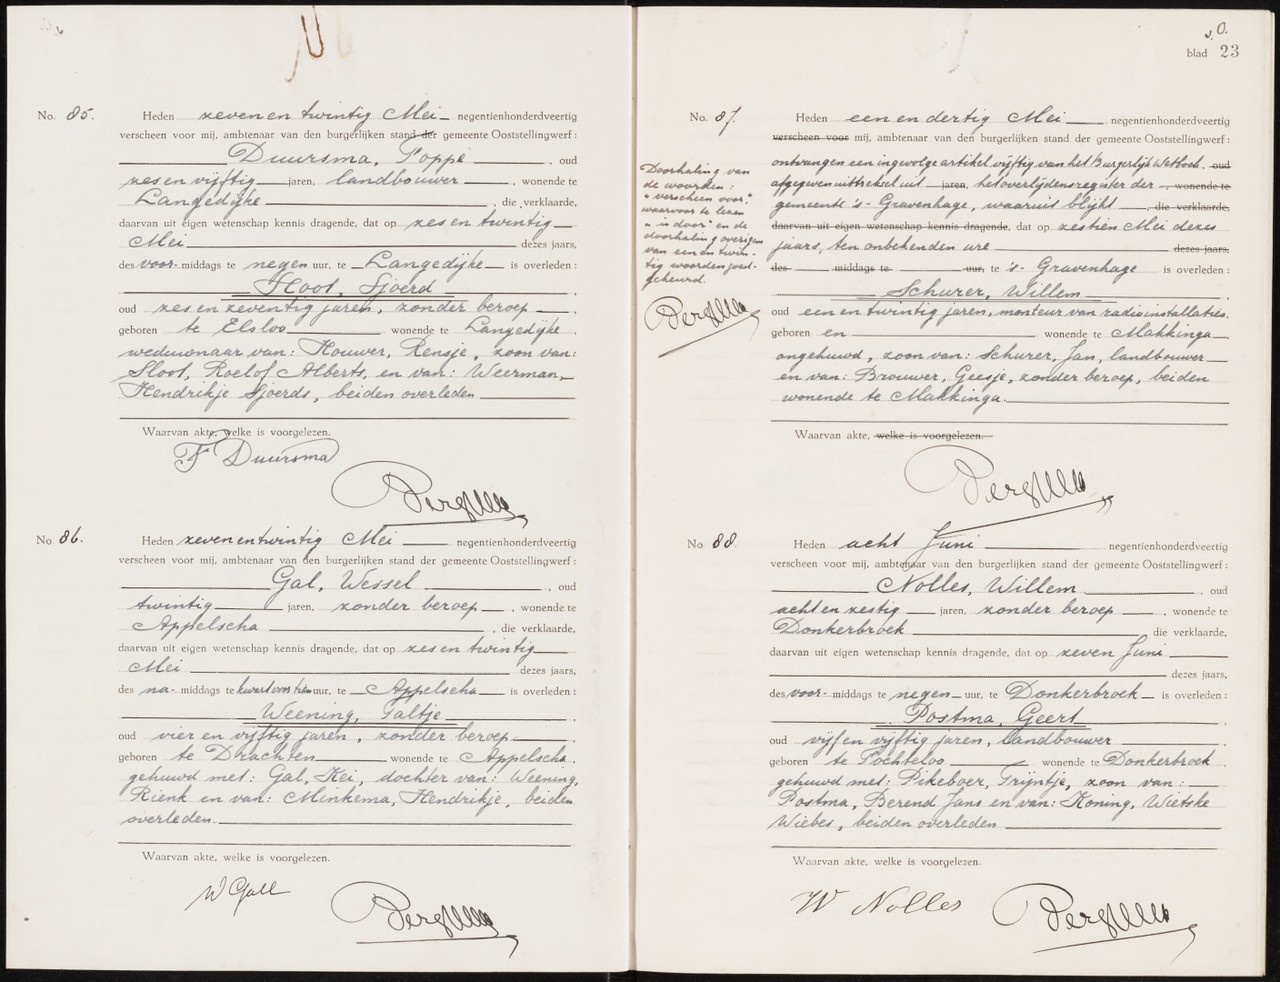 No. 85.
Heden zeven en twintig Mei negentienhonderdveertig
verscheen voor mij, ambtenaar van den burgerlijken stand der gemeente Ooststellingwerf:
Duursma, Foppe, oud
zes en vijftig jaren, landbouwer, wonende te
Langedijke, die verklaarde,
daarvan uit eigen wetenschap kennis dragende, dat op zes en twintig
Mei dezes jaars,
des voor-middags te negen uur, te Langedijke is overleden:
Sloot, Sjoerd,
oud zes en zeventig jaren, zonder beroep,
geboren te Elsloo wonende te Langedijke,
weduwnaar van: Houwer, Rensje, zoon van:
Sloot, Roelof Alberts, en van: Weerman,
Hendrikje Sjoerds, beiden overleden
Waarvan akte, welke is voorgelezen.
F Duursma
No. 86.
Heden zeven en twintig Mei negentienhonderdveertig
verscheen voor mij, ambtenaar van den burgerlijken stand der gemeente Ooststellingwerf:
Gal, Wessel, oud
twintig jaren, zonder beroep, wonende te
Appelscha, die verklaarde,
daarvan uit eigen wetenschap kennis dragende, dat op zes en twintig
Mei dezes jaars,
des na-middags te kwart voor tien uur, te Appelscha is overleden:
Weening, Taltje,
oud vier en vijftig jaren, zonder beroep,
geboren te Drachten wonende te Appelscha,
gehuwd met: Gal, Kei, dochter van: Weening,
Rienk en van: Minkema, Hendrikje, beiden
overleden.
Waarvan akte, welke is voorgelezen.
W Gall
blad 23
No. 87.
Heden een en dertig Mei negentienhonderdveertig
verscheen voor mij, ambtenaar van den burgerlijken stand der gemeente Ooststellingwerf:
ontvangen een ingevolge artikel vijftig van het Burgerlijk Wetboek, oud
afgegeven uittreksel uit jaren, het overlijdensregister der, wonende te
gemeente 's-Gravenhage, waaruit blijkt, die verklaarde,
daarvan uit eigen wetenschap kennis dragende, dat op zestien Mei dezes
jaars, ten onbekenden ure dezes jaars,
des middags te uur, te 's-Gravenhage is overleden:
Schurer, Willem,
oud een en twintig jaren, monteur van radioinstallaties,
geboren en wonende te Makkinga
ongehuwd, zoon van: Schurer, Jan, landbouwer
en van: Brouwer, Geesje, zonder beroep, beiden
wonende te Makkinga.
Waarvan akte, welke is voorgelezen.
Doorhaling van
de woorden:
"verscheen voor",
waarvoor te lezen
"is door" en de
doorhaling overigens
van een en twin-
tig woorden goed-
gekeurd.
No. 88.
Heden acht Juni negentienhonderdveertig
verscheen voor mij, ambtenaar van den burgerlijken stand der gemeente Ooststellingwerf:
Nolles, Willem, oud
acht en zestig jaren, zonder beroep, wonende te
Donkerbroek die verklaarde,
daarvan uit eigen wetenschap kennis dragende, dat op zeven Juni
dezes jaars,
des voor-middags te negen uur, te Donkerbroek is overleden:
Postma, Geert,
oud vijf en vijftig jaren, landbouwer,
geboren te Fochteloo wonende te Donkerbroek,
gehuwd met: Pikeboer, Trijntje, zoon van:
Postma, Berend Jans en van: Koning, Wietske
Wiebes, beiden overleden
Waarvan akte, welke is voorgelezen.
W Nolles